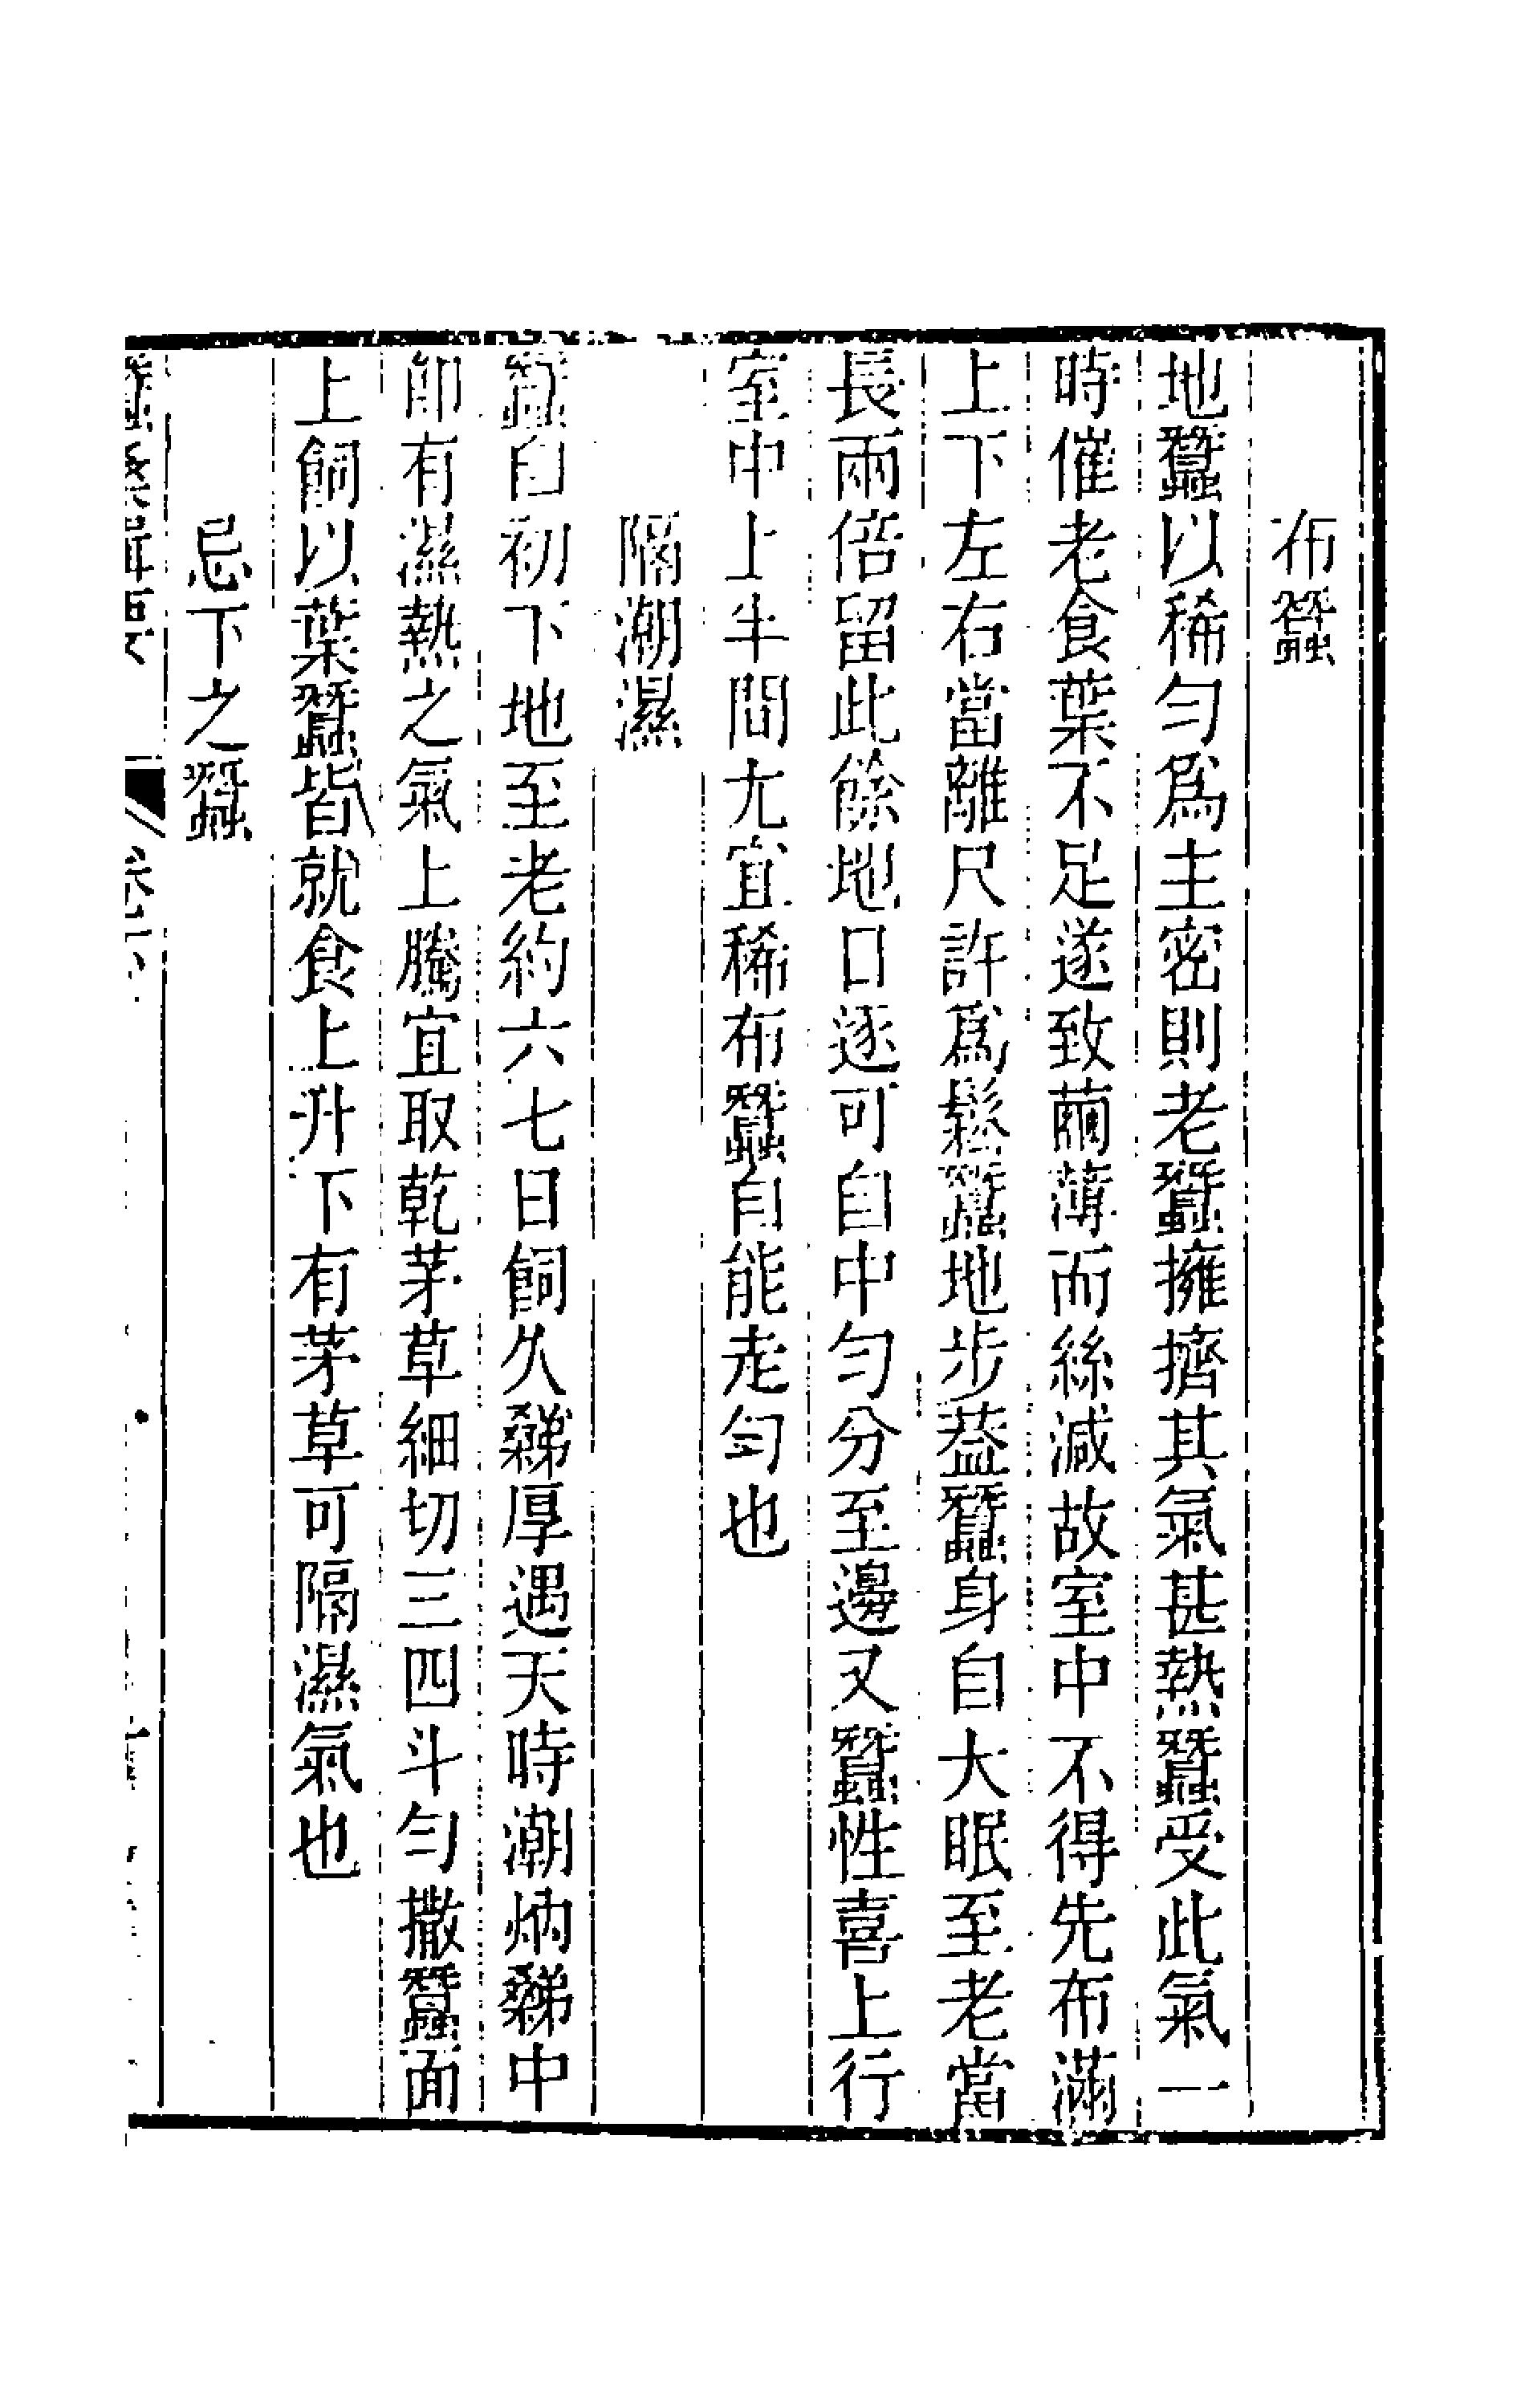 布蠶
地蠶以稀勻爲主密則老蠶擁擠其氣甚熱蠶受此氣一
時催老食葉不足遂致繭薄而絲減故室中不得先布滿
上下左右當離尺許爲鬆蠶地步葢蠶身自大眠至老當
長兩倍留此餘地口逐可自中勻分至邊又蠶性喜上行
室中上半間尤宜稀布蠶自能走勻也
隔潮濕
蠶自初下地至老約六七日飼久
厚遇天時潮炳
中
卽有濕熱之氣上騰宜取乾茅草細切三四斗勻撒蠶面
上飼以葉蠶皆就食上升下有茅草可隔濕氣也
忌下之蠶
蠶桑輯要
卷